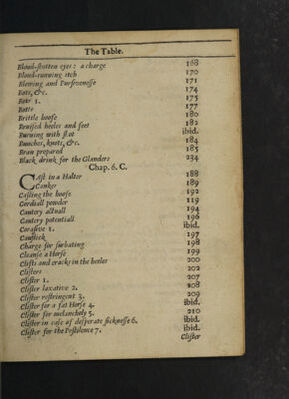 The Table.
Bloud-shotten eyes: a charge 168
Bloud-running itch 170
Blowing and Pursivenesse 171
Bots, &c. 174
Botts 1. 175
Botts 177
Brittle hoofe 180
Bruised heeles and feet 182
Burning with shot ibid.
Bunches, knots, &c. 184
Bran prepared 185
Black drink for the Glanders 234
Chap. 6. C.
CAst in a Halter 188
Canker 189
Casting the hoofe 192
Cordiall powder 119
Cautery actuall 194
Cautery potentiall 196
Corasive 1. ibid.
Caustick 197
Charge for surbating 198
Cleanse a Horse 199
Clifts and cracks in the heeles 200
Clisters 202
Clister 1. 207
Clister laxative 2. 208
Clister restringent 3. 209
Clister for a fat Horse 4. ibid.
Clister for melancholy 5. 210
Clister in case of desperate sicknesse 6. ibid.
Clister for the Pestilence 7. ibid.
Clister